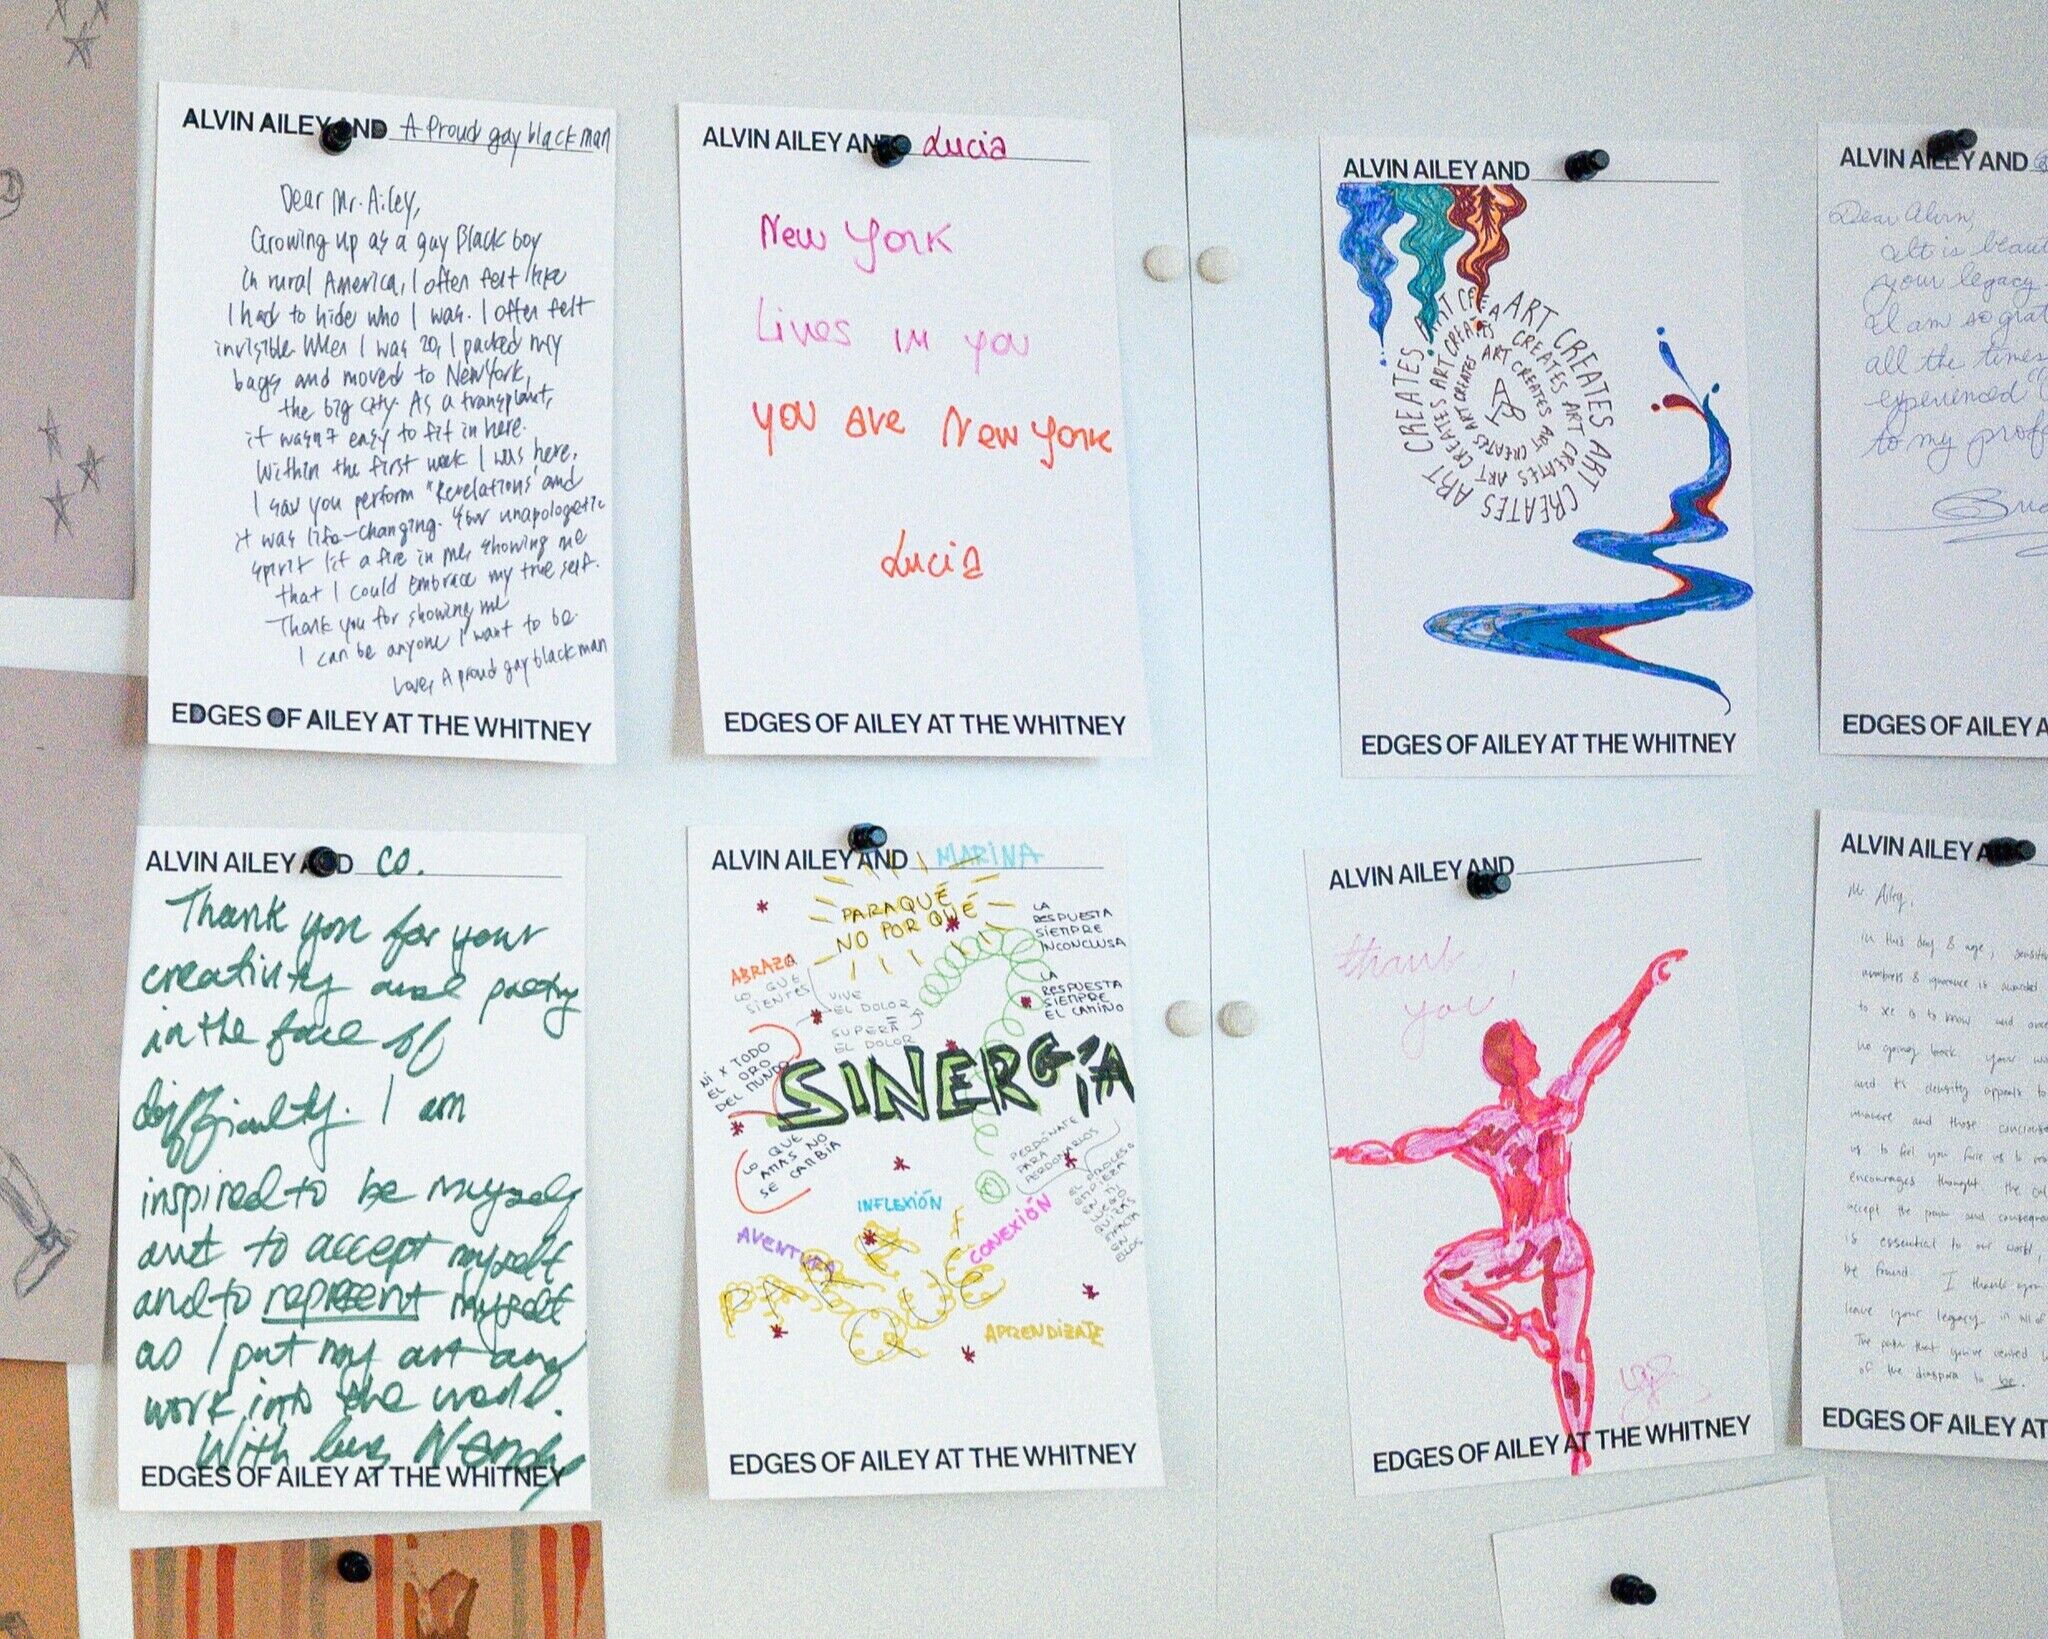 ALVIN AILEY AND A Proud gay black man
Dear Mr. Ailey,
Growing up as a gay Black boy
in rural America, I often felt like
I had to hide who I was. I often felt
invisible. When I was 20, I packed my
bags and moved to New York,
the big city. As a transplant,
it wasn't easy to fit in here.
Within the first week I was here,
I saw you perform "Revelations" and
it was life-changing. Your unapologetic
spirit lit a fire in me, showing me
that I could embrace my true self.
Thank you for showing me
I can be anyone I want to be.
Love, A proud gay black man
EDGES OF AILEY AT THE WHITNEY
ALVIN AILEY AND Lucia
New York
Lives in you
you are New York
Lucia
EDGES OF AILEY AT THE WHITNEY
ALVIN AILEY AND
ART CREATES ART CREATES ART CREATES ART CREATES ART CREATES
EDGES OF AILEY AT THE WHITNEY
ALVIN AILEY AND
Dear Alvin,
It is beaut
your legacy
I am so grat
all the times
experienced
to my prof
EDGES OF AILEY A
ALVIN AILEY AND CO.
Thank you for your
creativity and poetry
in the face of
difficulty. I am
inspired to be myself
and to accept myself
and to represent myself
as I put my art and
work into the world.
With love,
EDGES OF AILEY AT THE WHITNEY
ALVIN AILEY AND MARINA
PARA QUÉ
NO POR QUÉ
LA
RESPUESTA
SIEMPRE
INCONCLUSA
ABRAZA
LO QUE
SIENTES
VIVE
EL DOLOR
SUPERA
EL DOLOR
LA
RESPUESTA
SIEMPRE
EL CAMINO
NI X TODO
EL ORO
DEL MUNDO
SINERGIA
LO QUE
AMAS NO
SE CAMBIA
PERDÓNATE
PARA
PERDONARLOS
INFLEXIÓN
AVENTURA
CONEXIÓN
PARQUE
APRENDIZATE
EDGES OF AILEY AT THE WHITNEY
ALVIN AILEY AND
thank
you
EDGES OF AILEY AT THE WHITNEY
ALVIN AILEY A
Mr. Ailey,
in this day & age,
numbers & ignorance is
to
no going back. your
and its density appeals to
and those
us to feel you
encourages thought
accept the pain and
is essential to our world,
be found. I thank you
leave your legacy in all of
The path that you've
of the diaspora to be.
EDGES OF AILEY AT